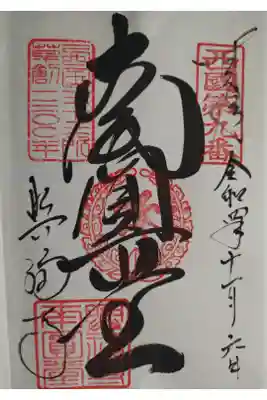 西國第九番
奉拝 令和四年十一月六日
南圓堂
西国三十三所
草創一三〇〇年
興福寺